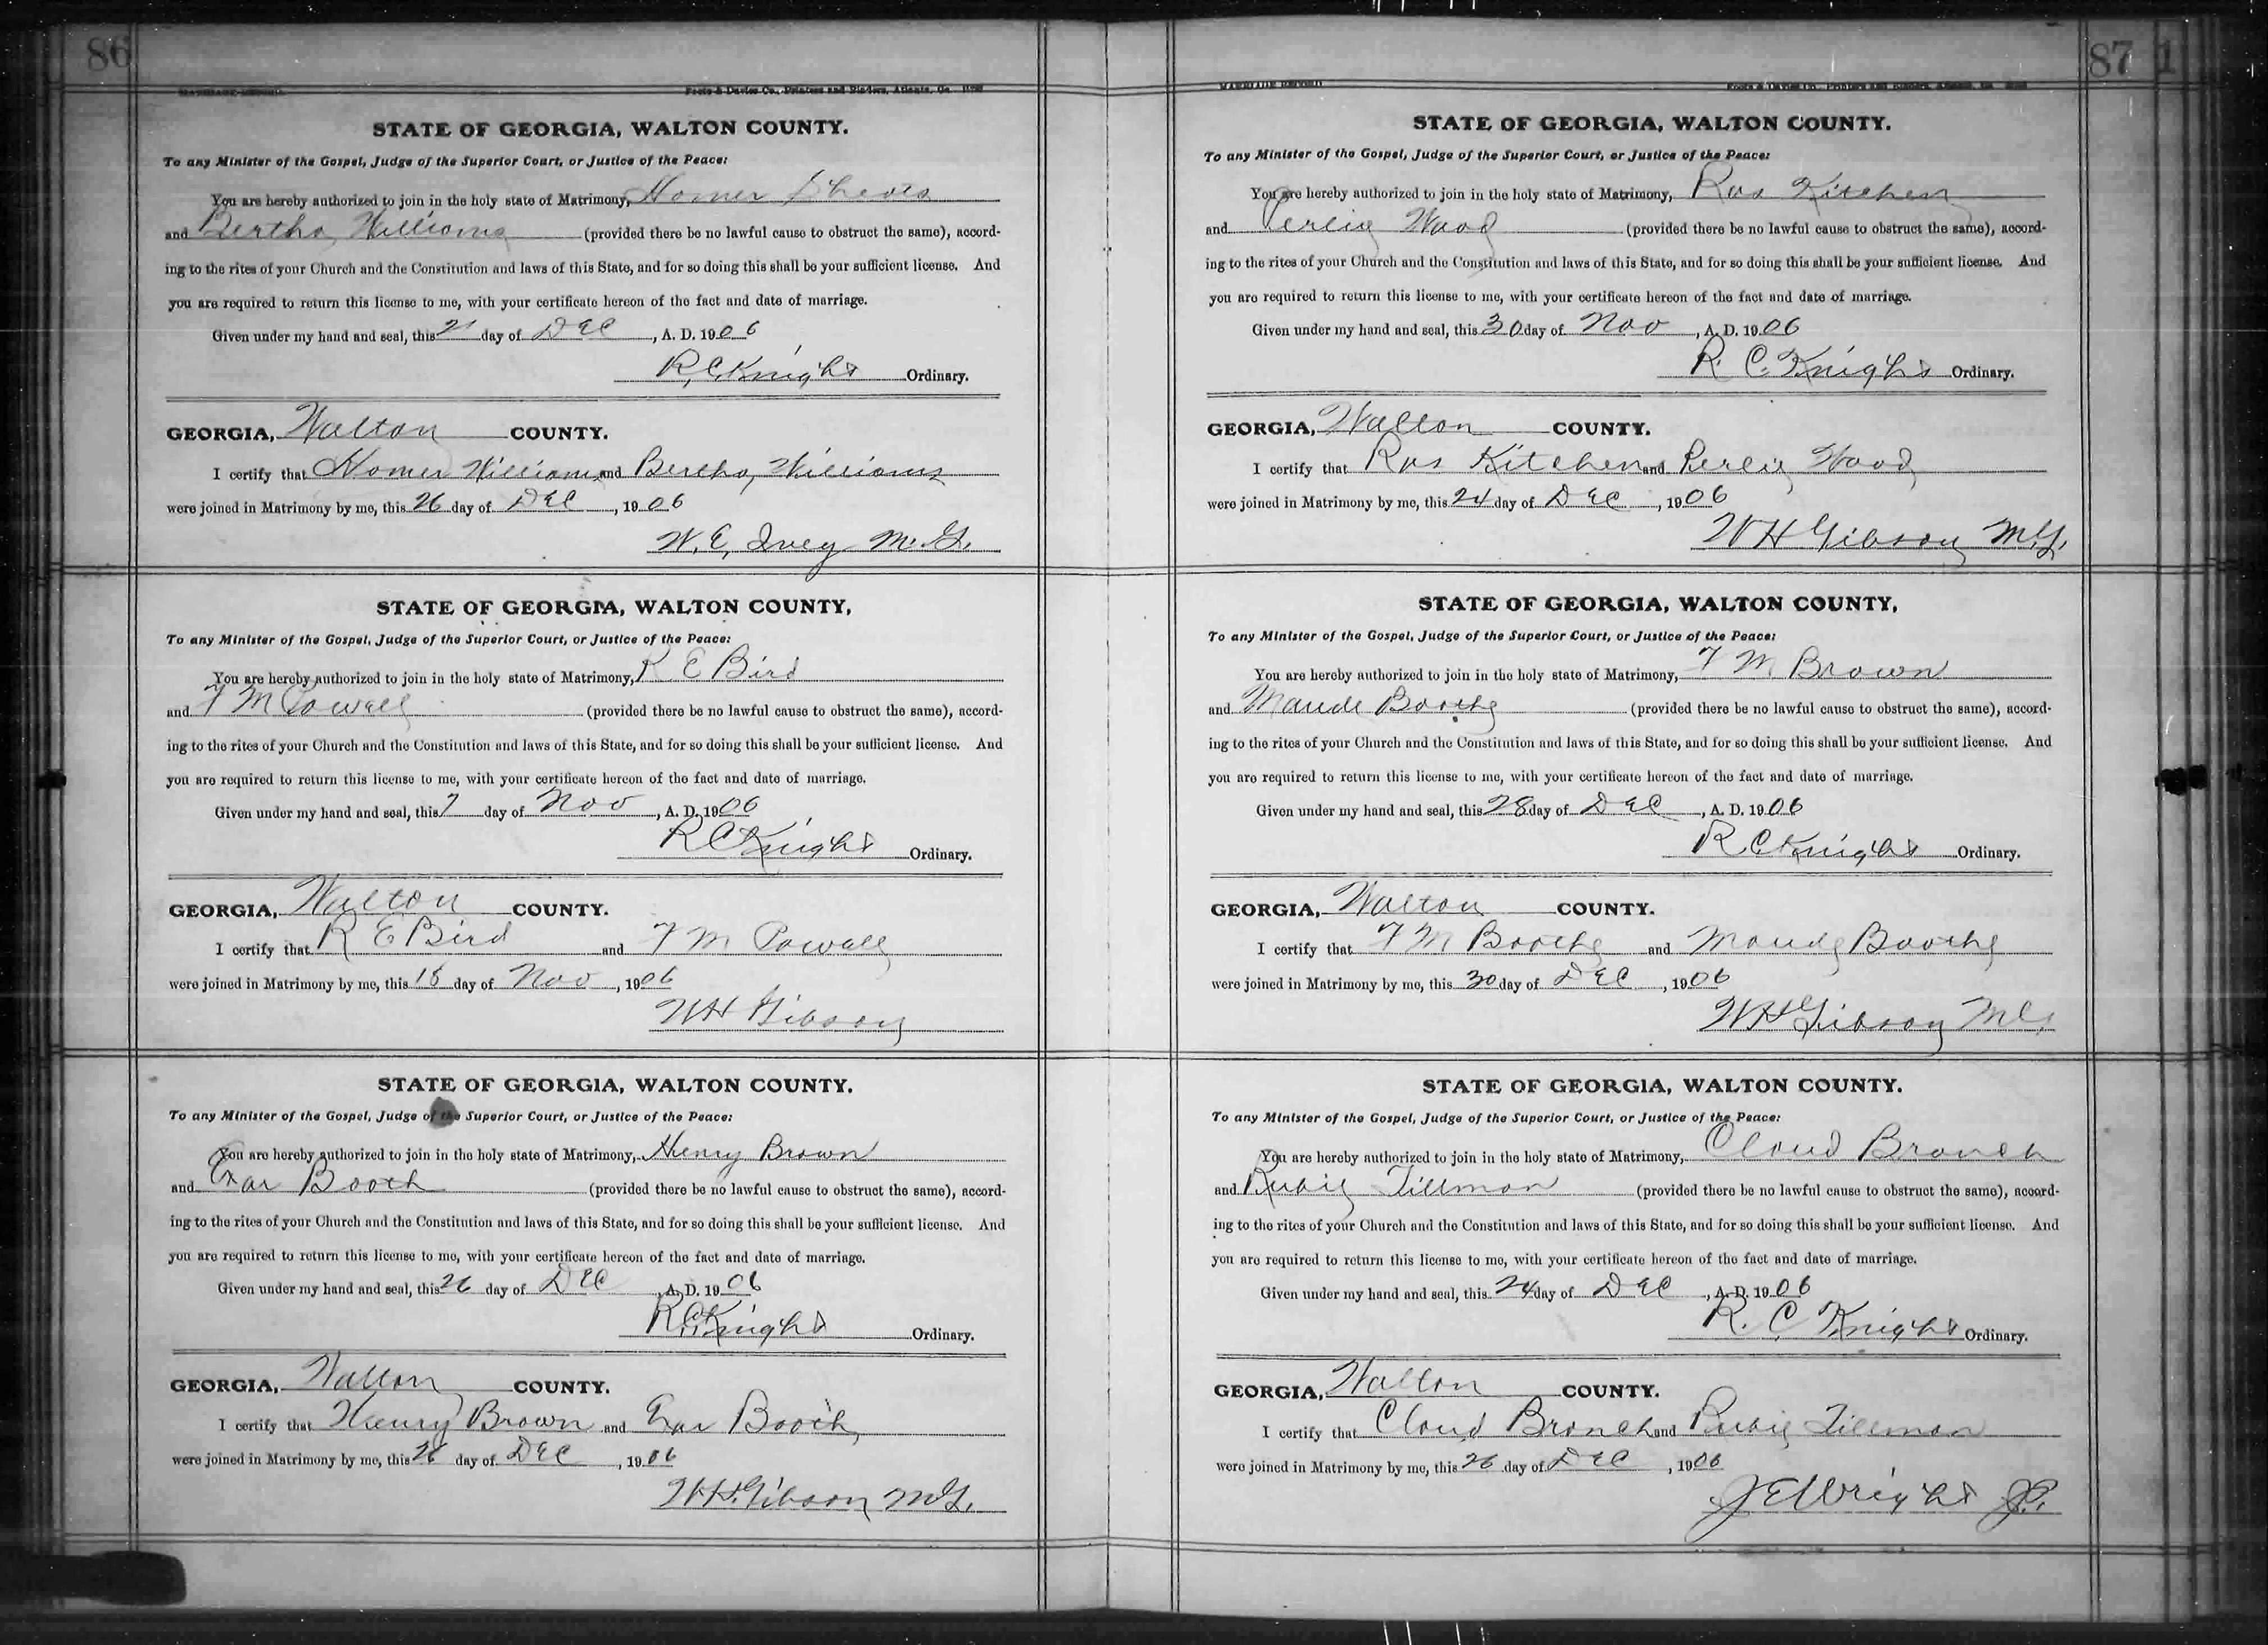 86
MARRIAGE RECORD.
Foote & Davies Co., Printers and Binders, Atlanta, Ga.
STATE OF GEORGIA, WALTON COUNTY.
To any Minister of the Gospel, Judge of the Superior Court, or Justice of the Peace:
You are hereby authorized to join in the holy state of Matrimony, Homer Sheats
and Bertha Williams (provided there be no lawful cause to obstruct the same), accord-
ing to the rites of your Church and the Constitution and laws of this State, and for so doing this shall be your sufficient license. And
you are required to return this license to me, with your certificate hereon of the fact and date of marriage.
Given under my hand and seal, this 21 day of DEC, A. D. 1906
R, C. Knight Ordinary.
GEORGIA, Walton COUNTY.
I certify that Homer Williams and Bertha Williams
were joined in Matrimony by me, this 26 day of DEC, 1906
W. E, Ivey M. G.
STATE OF GEORGIA, WALTON COUNTY,
To any Minister of the Gospel, Judge of the Superior Court, or Justice of the Peace:
You are hereby authorized to join in the holy state of Matrimony, R E Bird
and F M Powell (provided there be no lawful cause to obstruct the same), accord-
ing to the rites of your Church and the Constitution and laws of this State, and for so doing this shall be your sufficient license. And
you are required to return this license to me, with your certificate hereon of the fact and date of marriage.
Given under my hand and seal, this 7 day of Nov, A. D. 1906
R C Knight Ordinary.
GEORGIA, Walton COUNTY.
I certify that R E Bird and F M Powell
were joined in Matrimony by me, this 18 day of Nov, 1906
W H Gibson
STATE OF GEORGIA, WALTON COUNTY.
To any Minister of the Gospel, Judge of the Superior Court, or Justice of the Peace:
You are hereby authorized to join in the holy state of Matrimony, Henry Brown
and Booth (provided there be no lawful cause to obstruct the same), accord-
ing to the rites of your Church and the Constitution and laws of this State, and for so doing this shall be your sufficient license. And
you are required to return this license to me, with your certificate hereon of the fact and date of marriage.
Given under my hand and seal, this 26 day of DEC, A. D. 1906
R C Knight Ordinary.
GEORGIA, Walton COUNTY.
I certify that Henry Brown and Booth
were joined in Matrimony by me, this 26 day of DEC, 1906
W. H. Gibson M G.
87
1
MARRIAGE RECORD
Foote & Davies Co., Printers and Binders, Atlanta, Ga.
STATE OF GEORGIA, WALTON COUNTY.
To any Minister of the Gospel, Judge of the Superior Court, or Justice of the Peace:
You are hereby authorized to join in the holy state of Matrimony, Ras Kitchen
and Perlie Wood (provided there be no lawful cause to obstruct the same), accord-
ing to the rites of your Church and the Constitution and laws of this State, and for so doing this shall be your sufficient license. And
you are required to return this license to me, with your certificate hereon of the fact and date of marriage.
Given under my hand and seal, this 30 day of Nov, A. D. 1906
R. C. Knight Ordinary.
GEORGIA, Walton COUNTY.
I certify that Ras Kitchen and Perlie Wood
were joined in Matrimony by me, this 24 day of DEC, 1906
W H Gibson M. G.
STATE OF GEORGIA, WALTON COUNTY,
To any Minister of the Gospel, Judge of the Superior Court, or Justice of the Peace:
You are hereby authorized to join in the holy state of Matrimony, F M Brown
and Maude Boothe (provided there be no lawful cause to obstruct the same), accord-
ing to the rites of your Church and the Constitution and laws of this State, and for so doing this shall be your sufficient license. And
you are required to return this license to me, with your certificate hereon of the fact and date of marriage.
Given under my hand and seal, this 28 day of DEC, A. D. 1906
R C Knight Ordinary.
GEORGIA, Walton COUNTY.
I certify that F M Boothe and Maude Boothe
were joined in Matrimony by me, this 30 day of DEC, 1906
W H Gibson M G.
STATE OF GEORGIA, WALTON COUNTY.
To any Minister of the Gospel, Judge of the Superior Court, or Justice of the Peace:
You are hereby authorized to join in the holy state of Matrimony, Cloud Branch
and Rubie Tillman (provided there be no lawful cause to obstruct the same), accord-
ing to the rites of your Church and the Constitution and laws of this State, and for so doing this shall be your sufficient license. And
you are required to return this license to me, with your certificate hereon of the fact and date of marriage.
Given under my hand and seal, this 24 day of DEC, A. D. 1906
R. C Knight Ordinary.
GEORGIA, Walton COUNTY.
I certify that Cloud Branch and Rubie Tillman
were joined in Matrimony by me, this 26 day of DEC, 1906
J E Wright J. P.